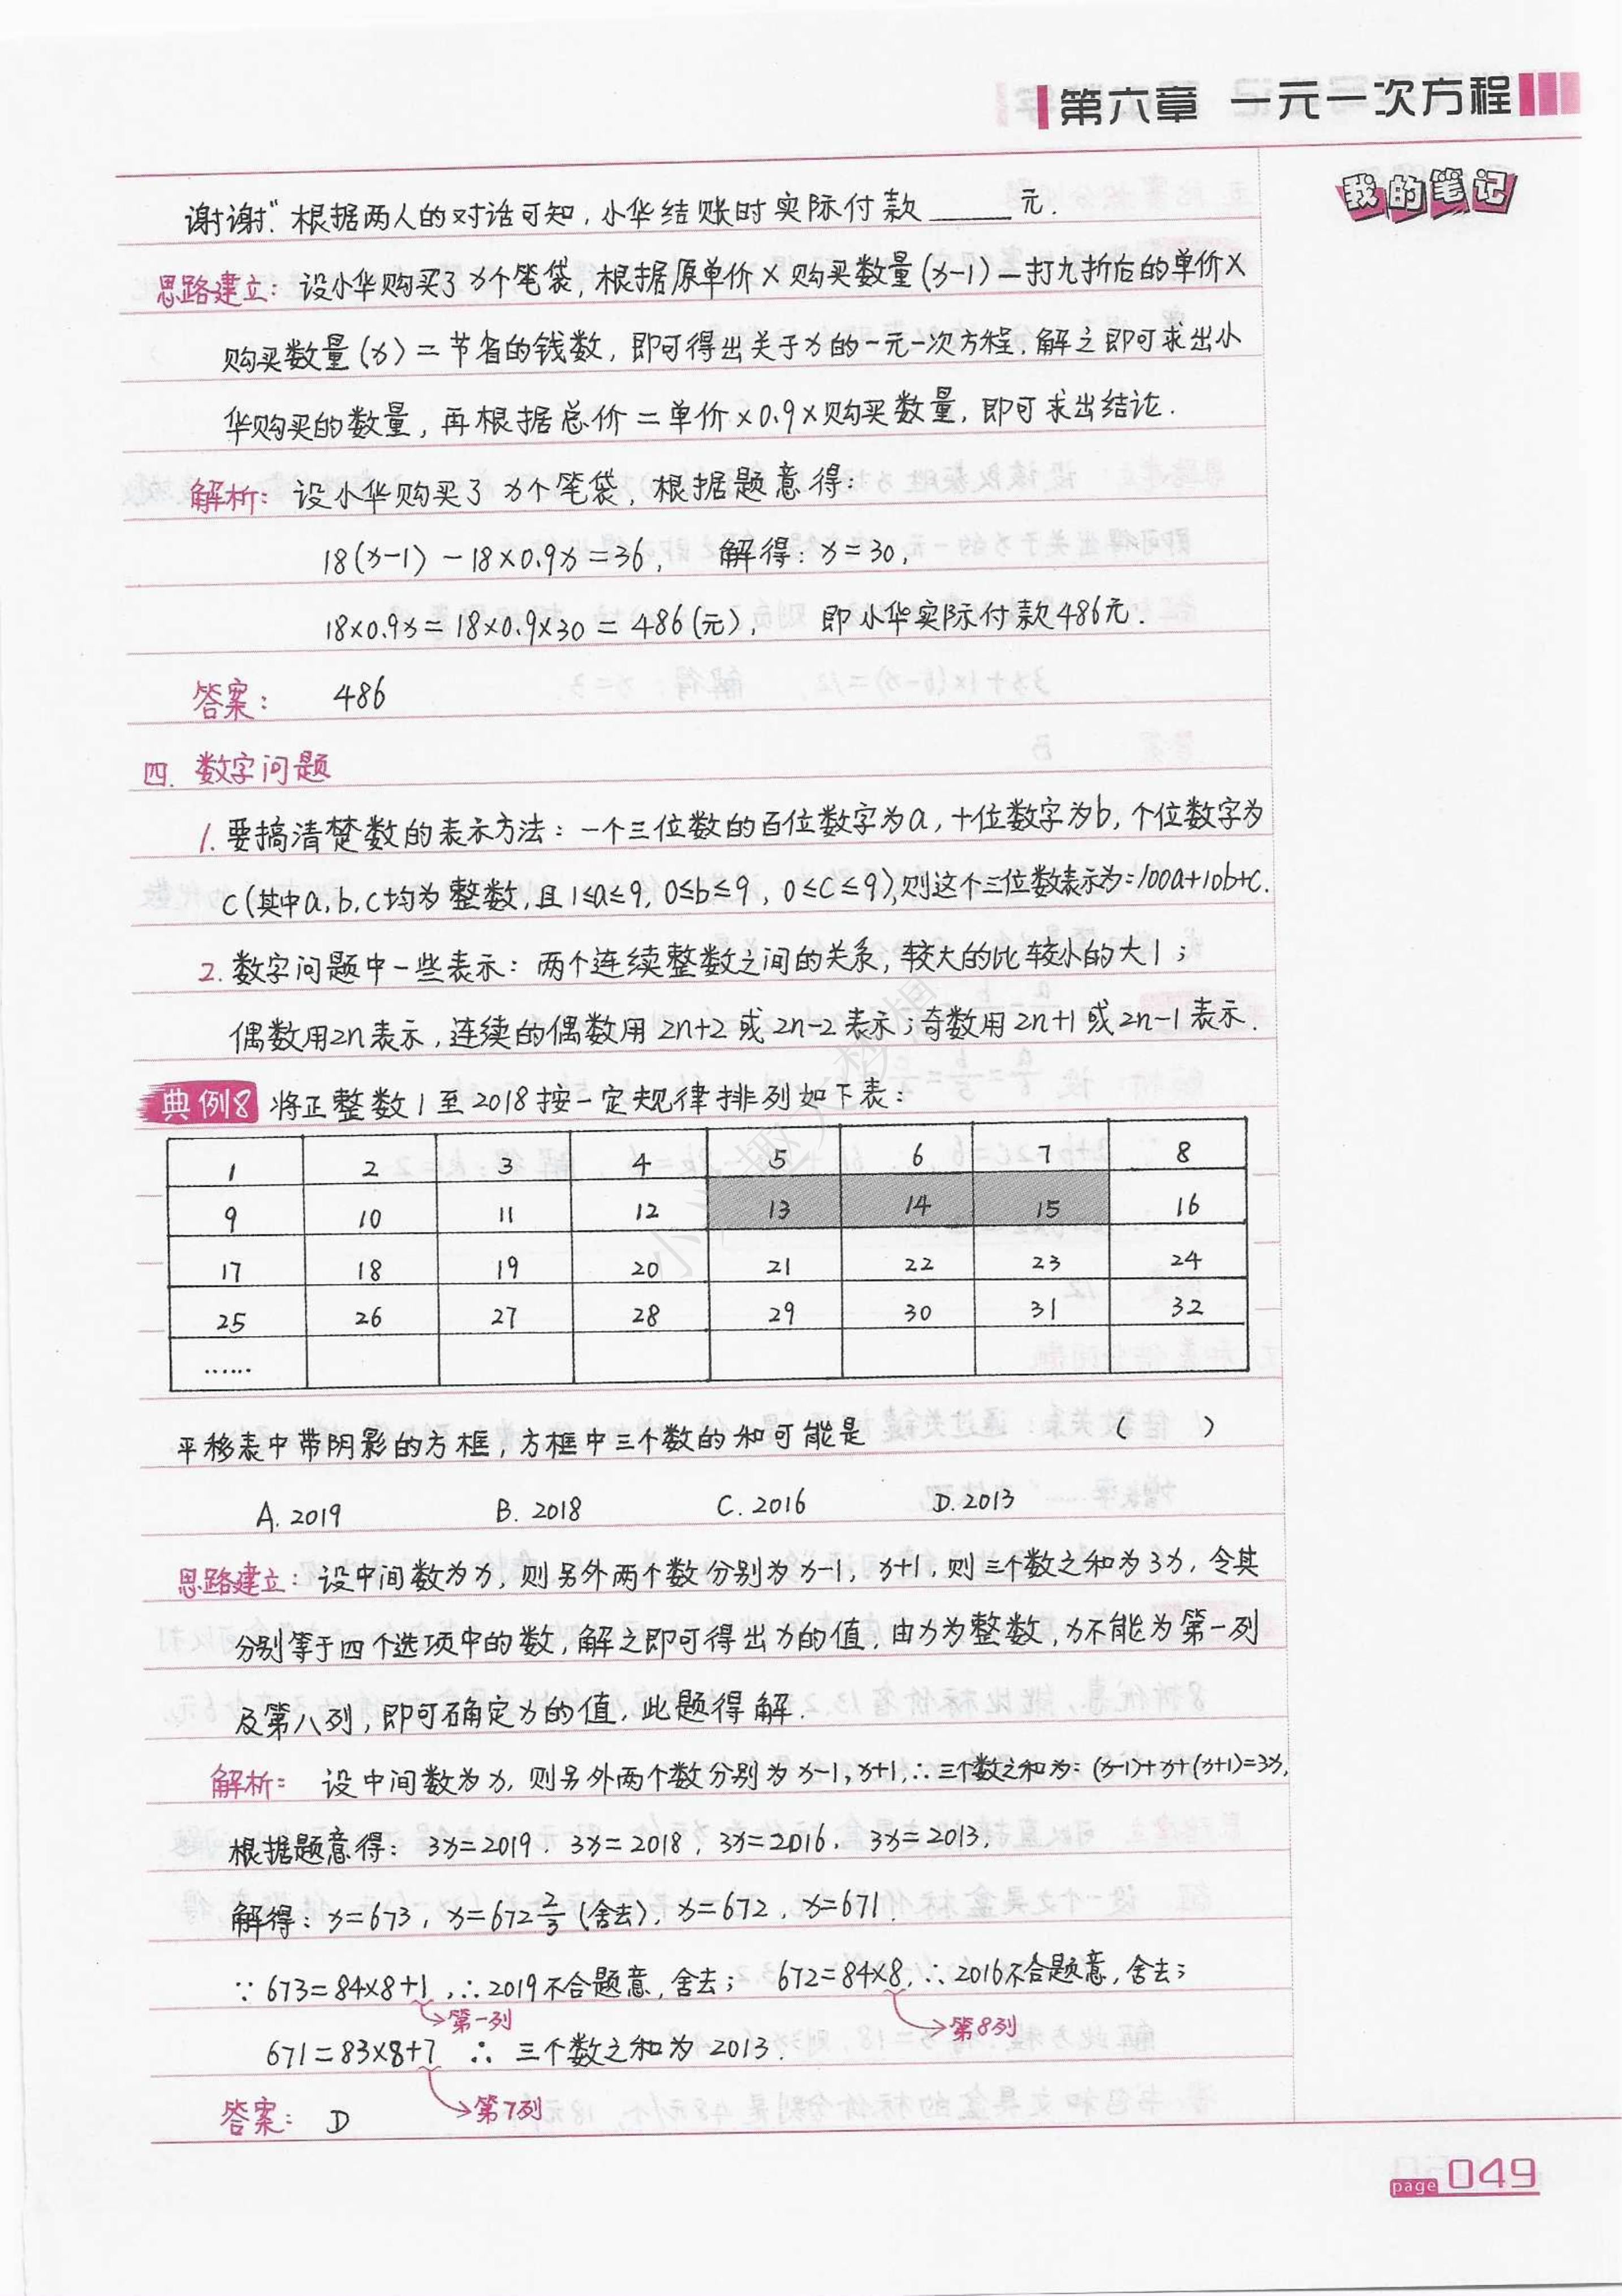 第六章 一元一次方程
我的笔记
谢谢.”根据两人的对话可知,小华结账时实际付款____元.
思路建立: 设小华购买了x个笔袋,根据原单价×购买数量(x-1)-打九折后的单价×
购买数量(x)=节省的钱数,即可得出关于x的一元一次方程.解之即可求出小
华购买的数量,再根据总价=单价×0.9×购买数量,即可求出结论.
解析: 设小华购买了x个笔袋,根据题意得:
18(x-1)-18×0.9x=36, 解得:x=30,
18×0.9x=18×0.9×30=486(元), 即小华实际付款486元.
答案: 486
四. 数字问题
1.要搞清楚数的表示方法:一个三位数的百位数字为a,十位数字为b,个位数字为
c(其中a,b,c均为整数,且1≤a≤9,0≤b≤9,0≤c≤9),则这个三位数表示为:100a+10b+c.
2.数字问题中一些表示:两个连续整数之间的关系,较大的比较小的大1;
偶数用2n表示,连续的偶数用2n+2或2n-2表示;奇数用2n+1或2n-1表示.
典例8 将正整数1至2018按一定规律排列如下表:
1 2 3 4 5 6 7 8
9 10 11 12 13 14 15 16
17 18 19 20 21 22 23 24
25 26 27 28 29 30 31 32
……
平移表中带阴影的方框,方框中三个数的和可能是 ( )
A.2019 B.2018 C.2016 D.2013
思路建立:设中间数为x,则另外两个数分别为x-1,x+1,则三个数之和为3x,令其
分别等于四个选项中的数,解之即可得出x的值,由x为整数,x不能为第一列
及第八列,即可确定x的值,此题得解.
解析: 设中间数为x,则另外两个数分别为x-1,x+1,∴三个数之和为:(x-1)+x+(x+1)=3x,
根据题意得: 3x=2019, 3x=2018, 3x=2016, 3x=2013,
解得:x=673, x=672 2/3 (舍去), x=672, x=671.
∵673=84×8+1,∴2019不合题意,舍去; 672=84×8,∴2016不合题意,舍去;
第一列 第8列
671=83×8+7 ∴ 三个数之和为2013.
第7列
答案: D
page 049